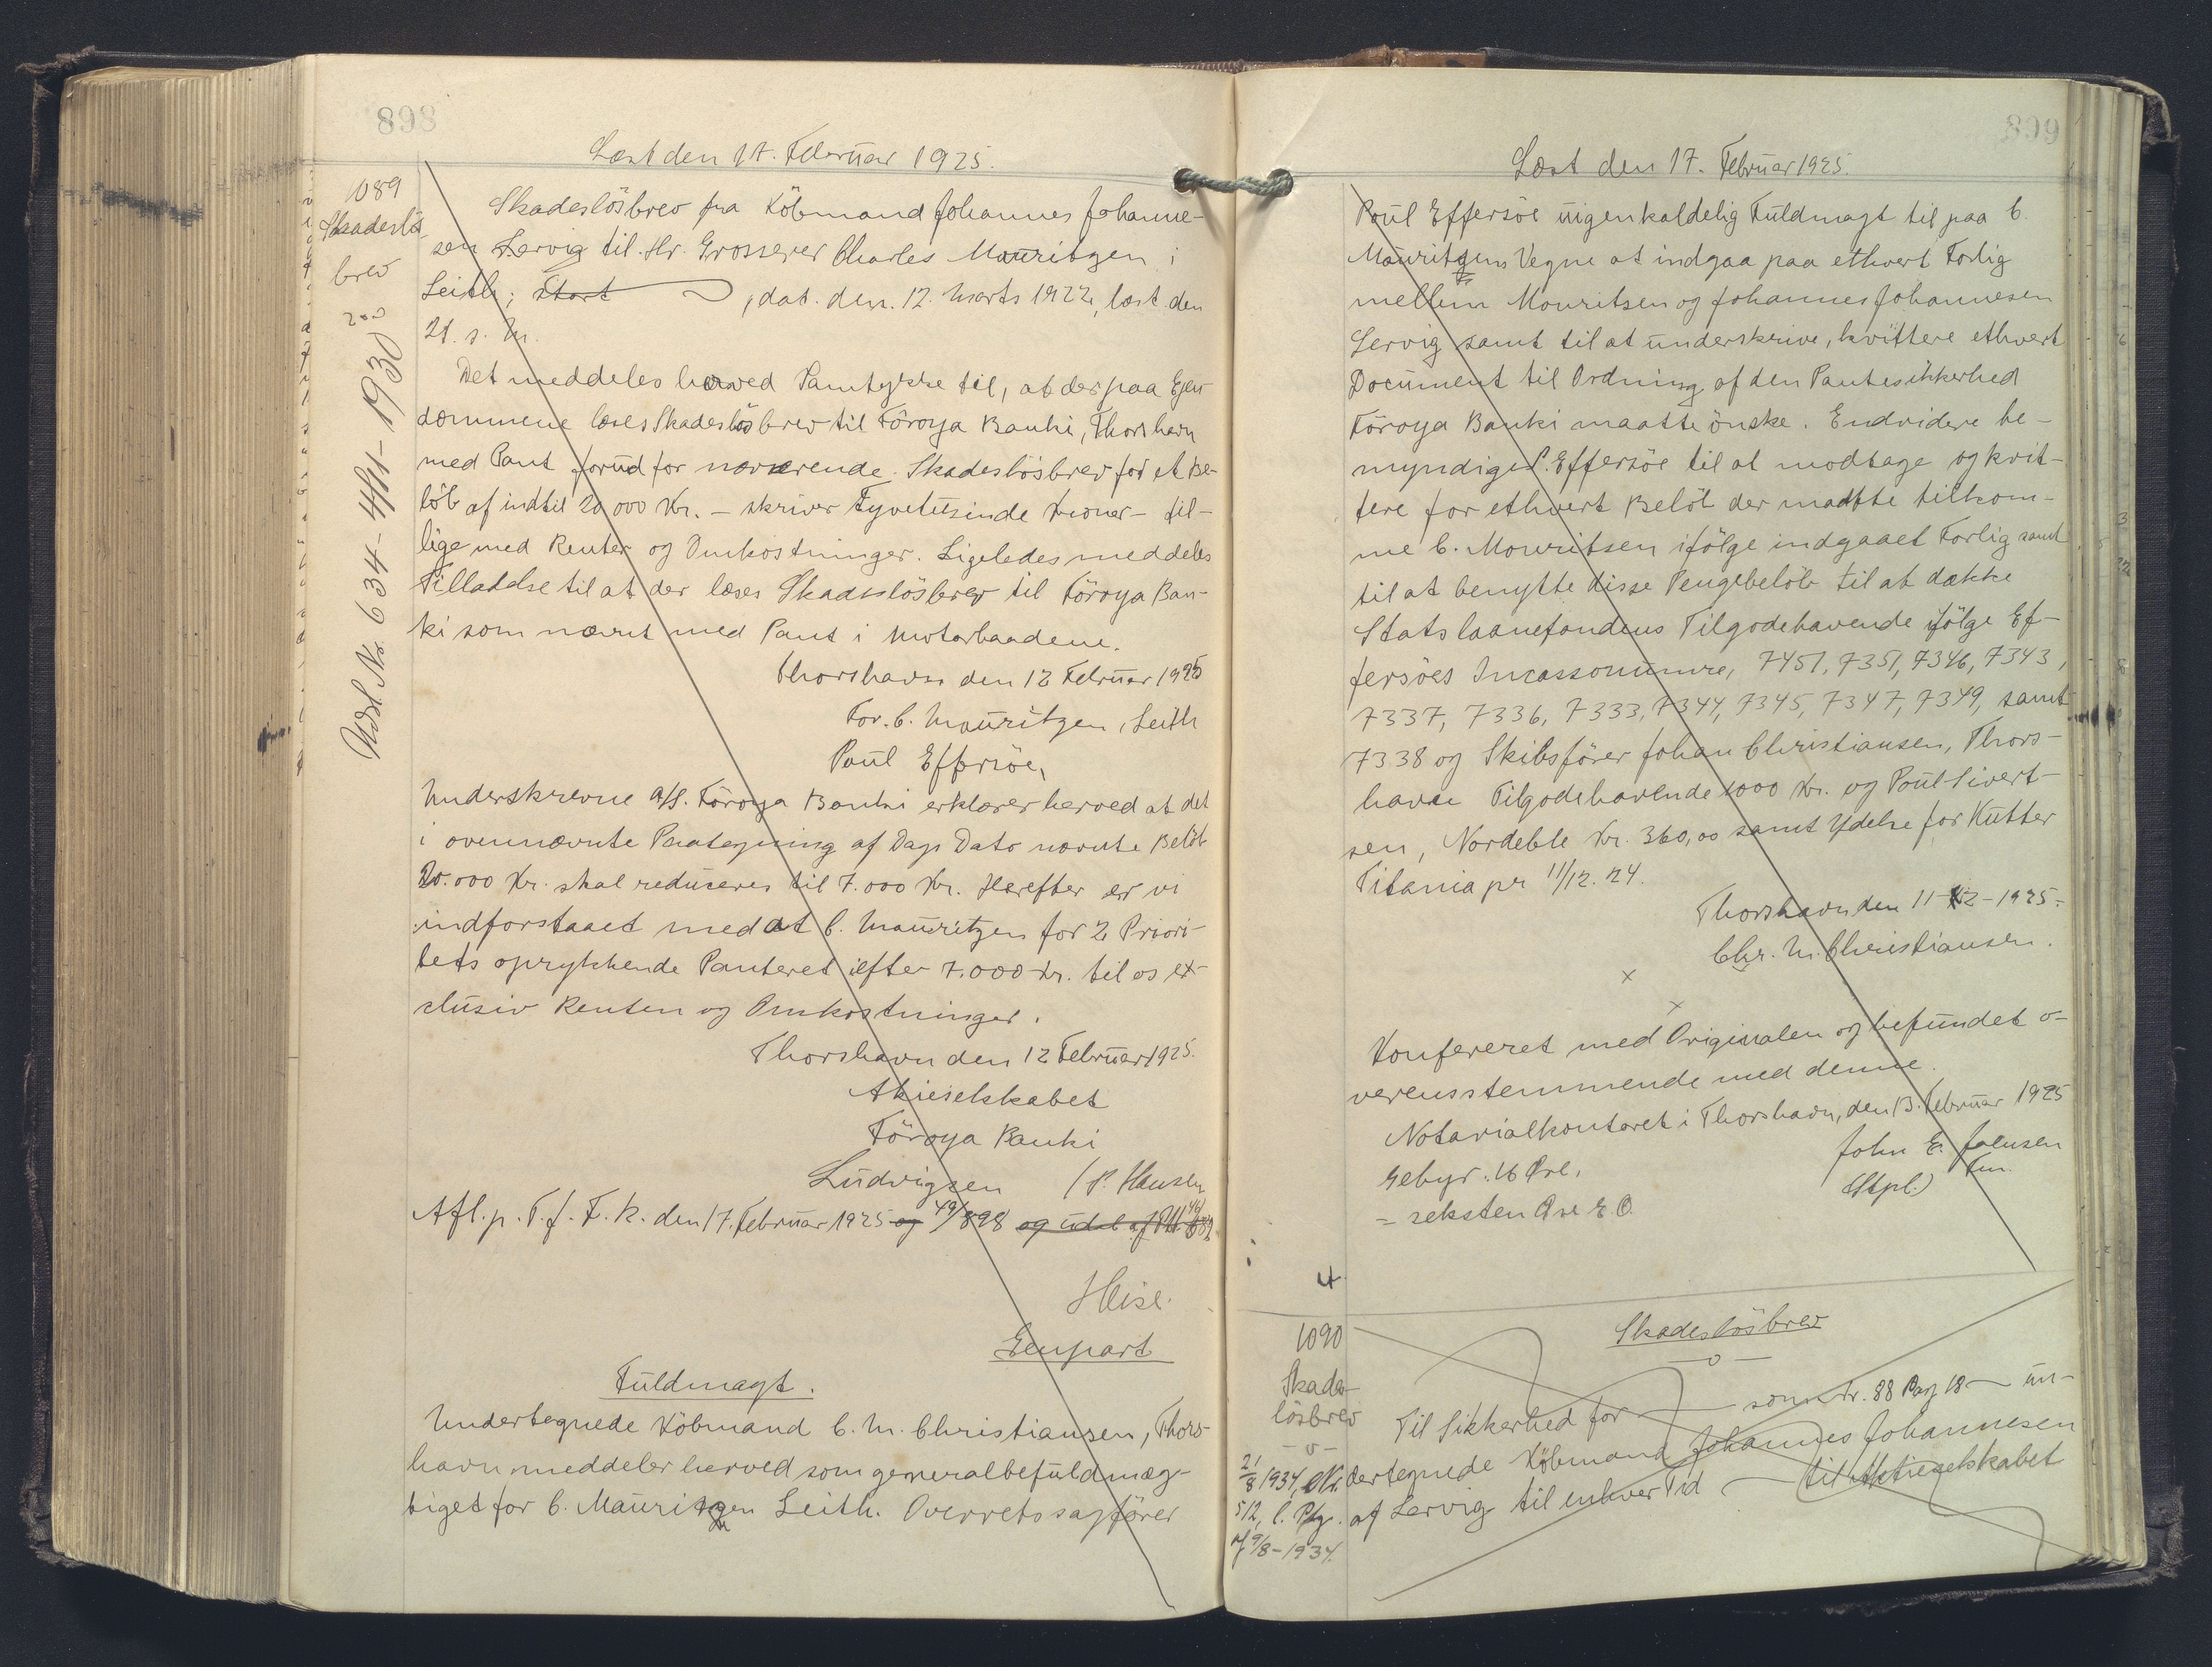 898
Læst den 17. Februar 1925.
1089
Skadeslös
brev
200
Udsl. Nr. 634-4/11-1930
Skadeslösbrev fra Köbmand Johannes Johanne-
sen Lervig til Hr. Grosserer Charles Mauritzen i
Leith; stort , dat. den 12. Marts 1922, læst den
21. s. M.
Det meddeles herved Samtykke til, at der paa Ejen
dommene læses Skadeslösbrev til Föroya Banki, Thorshavn
med Pant forud for nærværende Skadeslösbrev for et Be-
löb af indtil 20.000 Kr. - skriver Tyvetusinde Kroner - til-
lige med Renter og Omkostninger. Ligeledes meddeles
Tilladelse til at der læses Skadeslösbrev til Föroya Ban-
ki som nævnt med Pant i Motorbaadene.
Thorshavn den 12 Februar 1925
For. C. Mauritzen, Leith
Poul Effersöe,
Underskrevne A/S. Föroya Banki erklærer herved at det
i ovennævnte Paategning af Dags Dato nævnte Belöb
20.000 Kr. skal reduceres til 7.000 Kr. Herefter er vi
indforstaaet med at C. Mauritzen for 2 Priori-
tets oprykkende Panteret efter 7.000 Kr. til os ex-
clusiv Renten og Omkostninger.
Thorshavn den 12 Februar 1925.
Akieselskabet
Föroya Banki
Ludvigsen / P. Hansen
Afl. p. T. f. F. k. den 17. Februar 1925 og 49/898 og udsl. af
Heise.
Genpart
Fuldmagt.
Undertegnede Köbmand C. M. Christiansen, Thors-
havn meddeler herved som generalbefuldmæg-
tiget for C. Mauritzen Leith. Overretssagförer
899
Læst den 17. Februar 1925.
Poul Effersöe uigenkaldelig Fuldmagt til paa C.
Mouritzens Vegne at indgaa paa ethvert Forlig
mellem Mouritsen og Johannes Johannesen
Lervig samt til at underskrive, kvittere ethvert
Document til Ordning af den Pantesikkerhed
Föroya Banki maatte önske. Endvidere be-
myndiges P. Effersöe til at modtage og kvit-
tere for ethvert Belöb der maatte tilkom-
me C. Mouritsen ifölge indgaaet Forlig samt
til at benytte disse Pengebelöb til at dække
Statslaanefondens Tilgodehavende ifölge Ef-
fersöes Incassonumre, 7451, 7351, 7346, 7343,
7337, 7336, 7333, 7344, 7345, 7347, 7349, samt
7338 og Skibsförer Johan Christiansen, Thors-
havn Tilgodehavende 1000 Kr. og Poul Sivert-
sen, Nordeble Kr. 360,00 samt Ydelse for Kutter
Titania pr 11/12. 24.
Thorshavn den 11-2-1925.
Chr. M. Christiansen.
x
x
Konfereret med Originalen og befundet o-
verensstemmende med denne.
Notarialkontoret i Thorshavn, den 13. Februar 1925
Gebyr. 16 Øre. John E. Joensen
= seksten Øre E.O. (Stpl.) Fm.
4
1090
Skades-
lösbrev
21/8 1934, Nr.
512, l. Ptg.
af 9/8-1934.
Skadeslösbrev
Til Sikkerhed for som Nr. 88 Pag 18 un-
dertegnede Köbmand Johannes Johannesen
af Lervig til enhver Tid til Aktieselskabet